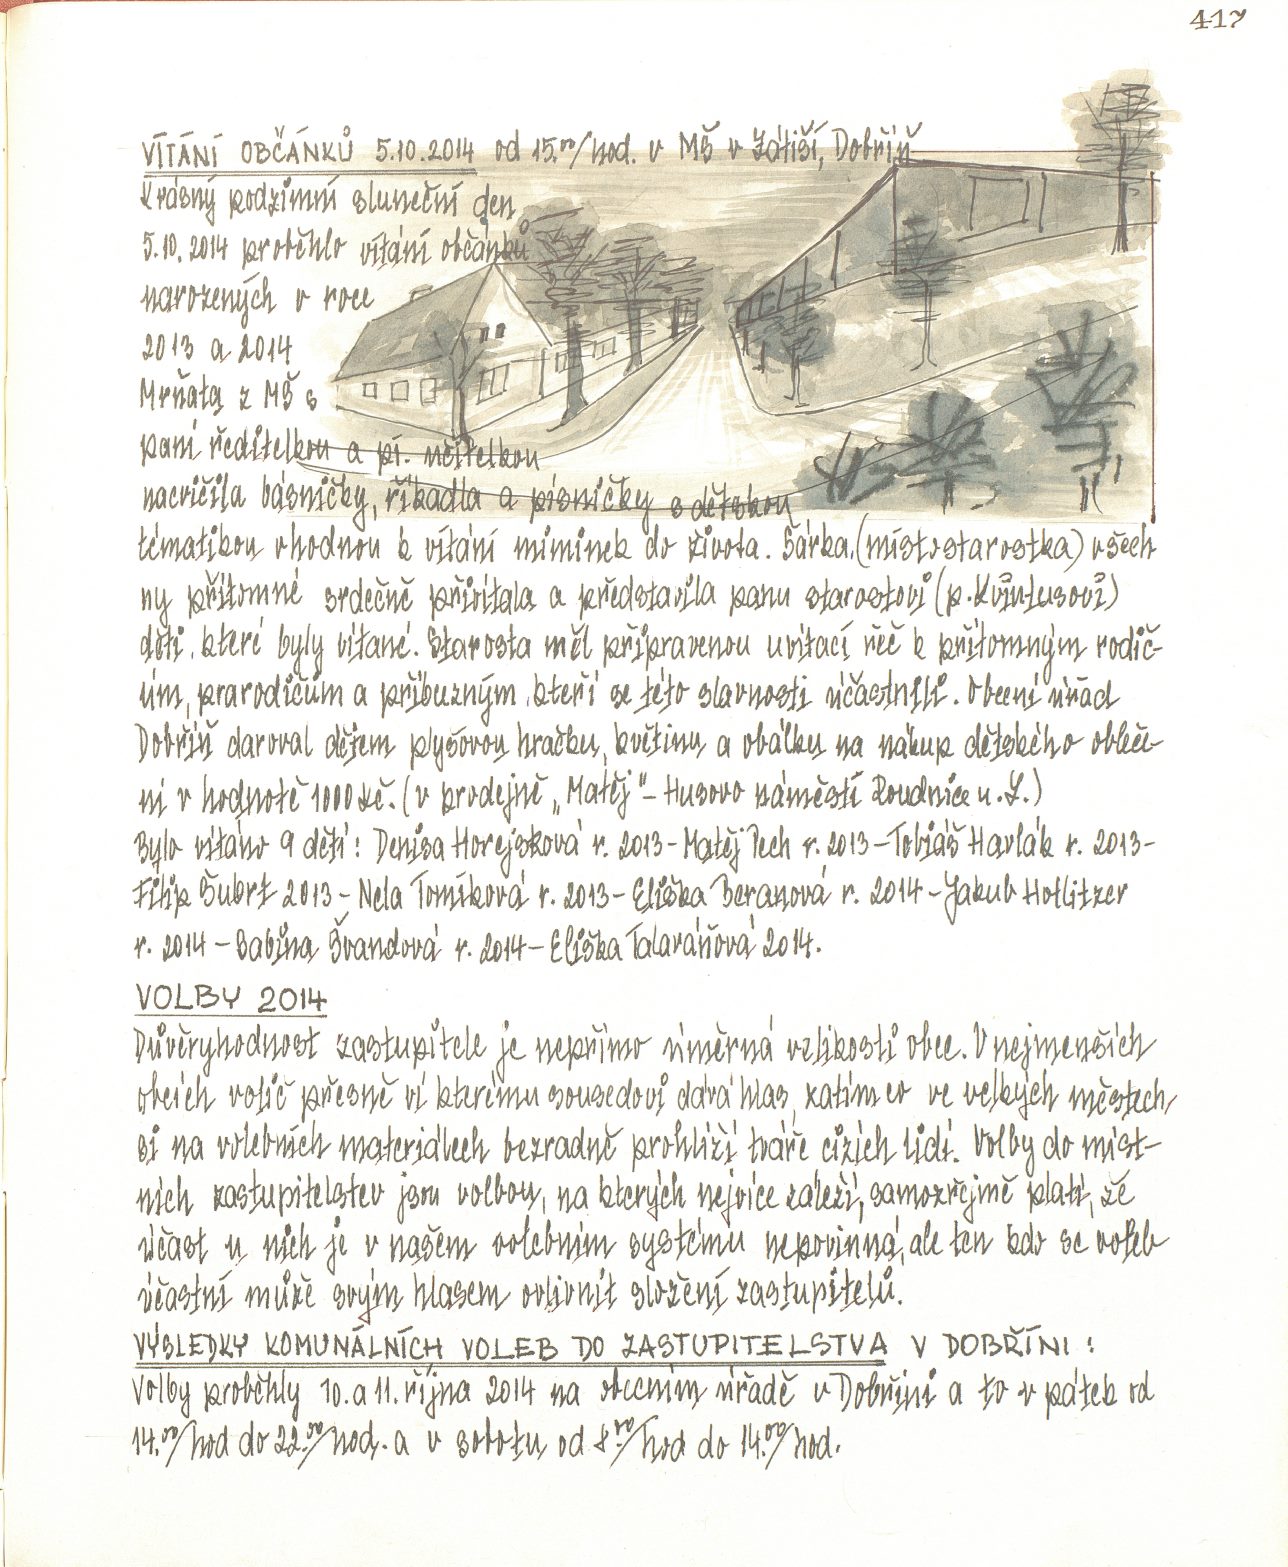 417
VÍTÁNÍ OBČÁNKŮ 5.10.2014 od 15.⁰⁰/hod. v MŠ v Zátiší, Dobříň
Krásný podzimní sluneční den
5.10.2014 proběhlo vítání občánků
narozených v roce
2013 a 2014
Mrňata z MŠ s
paní ředitelkou a pí. učitelkou
nacvičila básničky, říkadla a písničky s dětskou
tématikou vhodnou k vítání miminek do života. Šárka (místostarostka) všech
ny přítomné srdečně přivítala a představila panu starostovi (p. Kvintusovi)
děti, které byly vítané. Starosta měl připravenou uvítací řeč k přítomným rodič-
ům, prarodičům a příbuzným, kteří se této slavnosti účastnili. Obecní úřad
Dobříň daroval dětem plyšovou hračku, květinu a obálku na nákup dětského obleč-
ní v hodnotě 1000 Kč. (v prodejně „Matěj" - Husovo náměstí Roudnice n. L.)
Bylo vítáno 9 dětí: Denisa Horejsková r. 2013 - Matěj Pech r. 2013 - Tobiáš Havlák r. 2013 -
Filip Šubrt 2013 - Nela Tomíková r. 2013 - Eliška Beranová r. 2014 - Jakub Hotlitzer
r. 2014 - Sabina Švandová r. 2014 - Eliška Talaváňová 2014.
VOLBY 2014
Důvěryhodnost zastupitele je nepřímo úměrná velikosti obce. V nejmenších
obcích volič přesně ví kterému sousedovi dává hlas, zatímco ve velkých městech
si na volebních materiálech bezradně prohlíží tváře cizích lidí. Volby do míst-
ních zastupitelstev jsou volbou, na kterých nejvíce záleží, samozřejmě platí, že
účast u nich je v našem volebním systému nepovinná, ale ten kdo se voleb
účastní může svým hlasem ovlivnit složení zastupitelů.
VÝSLEDKY KOMUNÁLNÍCH VOLEB DO ZASTUPITELSTVA V DOBŘÍNI:
Volby proběhly 10. a 11. října 2014 na obecním úřadě v Dobříni a to v pátek od
14.⁰⁰/hod do 22.⁰⁰/hod. a v sobotu od 8.⁰⁰/hod do 14.⁰⁰/hod.